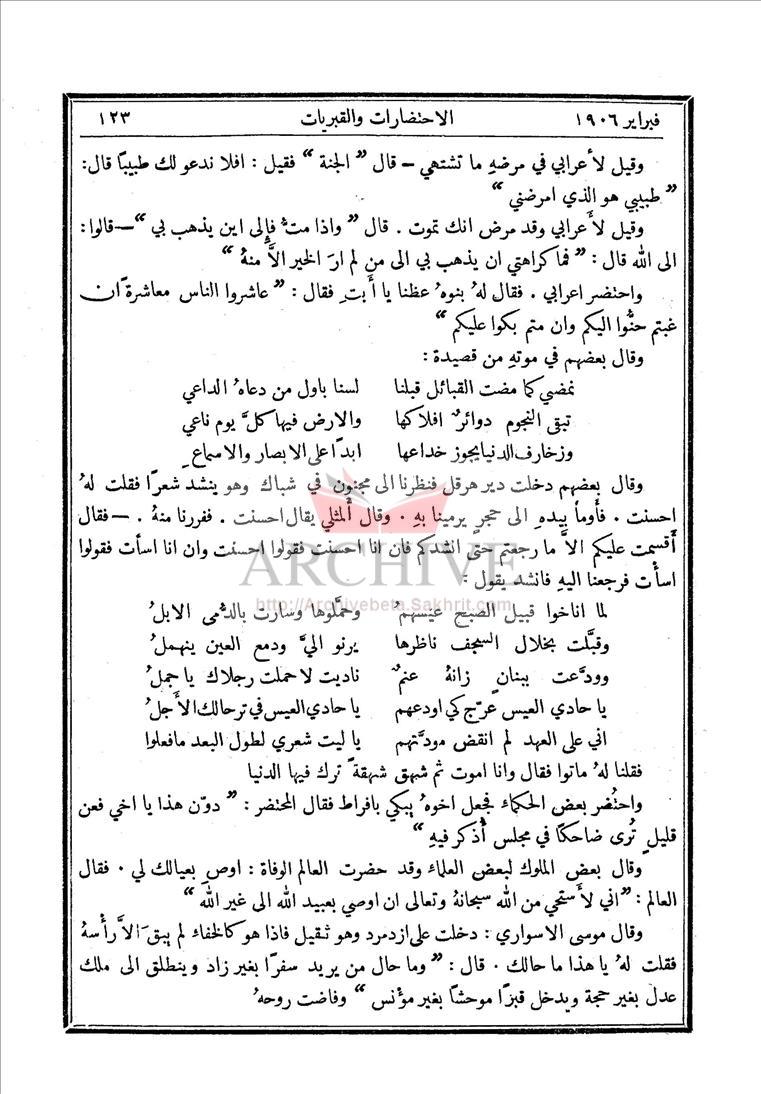 فبراير ١٩٠٦ الاحتضارات والقبريات ١٢٣
وقيل لأعرابي في مرضهِ ما تشتهي – قال ” الجنة “ فقيل : افلا ندعو لك طبيباً قال:
” طبيبي هو الذي امرضني “
وقيل لأعرابي وقد مرض انك تموت . قال ” واذا متُّ فإلى اين يذهب بي “—قالوا:
الى الله قال : ” فما كراهتي ان يذهب بي الى من لم ارَ الخير الاَّ منهُ “
واحتضر اعرابي . فقال لهُ بنوهُ عظنا يا أبتِ فقال : ” عاشروا الناس معاشرةً ان
غبتم حنُّوا اليكم وان متم بكوا عليكم “
وقال بعضهم في موتهِ من قصيدة :
نمضي كما مضت القبائل قبلنا لسنا باول من دعاهُ الداعي
تبقى النجوم دوائرٌ افلاكها والارض فيها كلَّ يوم ناعي
وزخارف الدنيا يجوز خداعها ابداً على الابصار والاسماعِ
وقال بعضهم دخلت دير هرقل فنظرنا الى مجنون في شباك وهو ينشد شعراً فقلت لهُ
احسنت . فأومأ بيدهِ الى حجرٍ يرمينا بهِ . وقال أَلمثلي يقال احسنت . ففررنا منهُ . — فقال
أقسمت عليكم الاَّ ما رجعتم حتى انشدكم فان انا احسنت فقولوا احسنت وان انا اسأت فقولوا
اسأت فرجعنا اليهِ فانشد يقول :
لما اناخوا قبيل الصبح عيسهمُ وحمَّلوها وسارت بالدُّمى الابلُ
وقبَّلت بخلال السجف ناظرها يرنو اليَّ ودمع العين ينهملُ
وودَّعت ببنانٍ زانهُ عنمٌ ناديت لا حملت رجلاك يا جملُ
يا حادي العيس عرّج كي اودعهم يا حادي العيس في ترحالك الأجلُ
اني على العهد لم انقض مودَّتهم يا ليت شعري لطول البعد مافعلوا
فقلنا لهُ ماتوا فقال وانا اموت ثم شهق شهقةً ترك فيها الدنيا
واحتُضر بعض الحكماء فجعل اخوهُ يبكي بافراط فقال المحتضر : ” دون هذا يا اخي فعن
قليلٍ تُرى ضاحكاً في مجلس أُذكر فيهِ “
وقال بعض الملوك لبعض العلماء وقد حضرت العالم الوفاة : اوصِ بعيالك لي . فقال
العالم : ”اني لأستحي من الله سبحانهُ وتعالى ان اوصي بعبيد الله الى غير الله “
وقال موسى الاسواري : دخلت على ازدمرد وهو ثقيل فاذا هو كالخفاء لم يبقَ الاَّ رأسهُ
فقلت لهُ يا هذا ما حالك . قال : ” وما حال من يريد سفراً بغير زاد وينطلق الى ملك
عدل بغير حجة ويدخل قبراً موحشاً بغير مؤنس “ وفاضت روحهُ
ARCHIVE
http://Archivebeta.Sakhrit.com